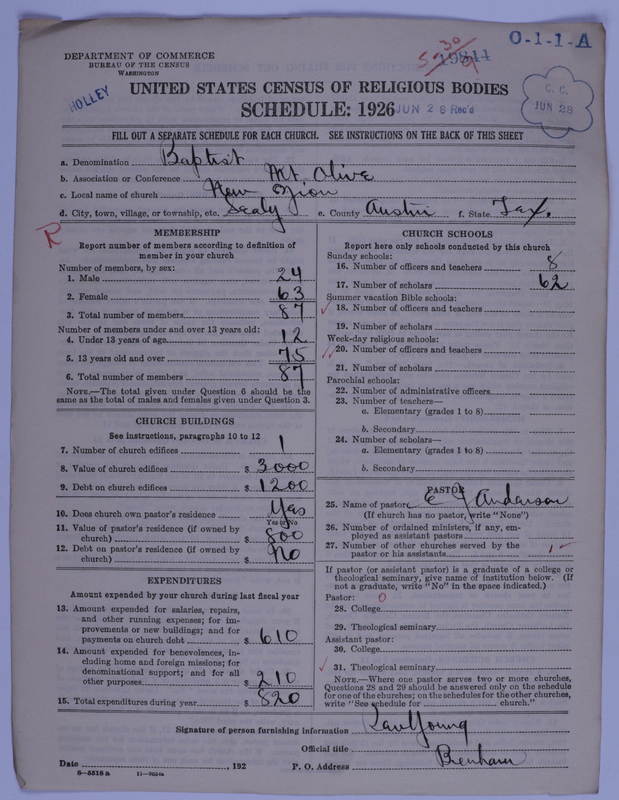 O-1-1-A
DEPARTMENT OF COMMERCE
BUREAU OF THE CENSUS
WASHINGTON
HOLLEY
UNITED STATES CENSUS OF RELIGIOUS BODIES
SCHEDULE: 1926
JUN 28 Rec'd
C. C.
JUN 28
FILL OUT A SEPARATE SCHEDULE FOR EACH CHURCH. SEE INSTRUCTIONS ON THE BACK OF THIS SHEET
a. Denomination Baptist
b. Association or Conference Mt. Olive
c. Local name of church New Zion
d. City, town, village, or township, etc. Sealy e. County Austin f. State Tax.
R
MEMBERSHIP
Report number of members according to definition of
member in your church
Number of members, by sex:
1. Male 24
2. Female 63
3. Total number of members 87
Number of members under and over 13 years old:
4. Under 13 years of age 12
5. 13 years old and over 75
6. Total number of members 87
NOTE.—The total given under Question 6 should be the
same as the total of males and females given under Question 3.
CHURCH BUILDINGS
See instructions, paragraphs 10 to 12
7. Number of church edifices 1
8. Value of church edifices $ 3000
9. Debt on church edifices $ 1200
10. Does church own pastor's residence Yas
Yes or No
11. Value of pastor's residence (if owned by
church) $ 800
12. Debt on pastor's residence (if owned by
church) $ No
EXPENDITURES
Amount expended by your church during last fiscal year
13. Amount expended for salaries, repairs,
and other running expenses; for im-
provements or new buildings; and for
payments on church debt $ 610
14. Amount expended for benevolences, in-
cluding home and foreign missions; for
denominational support; and for all
other purposes $ 210
15. Total expenditures during year $ 820
CHURCH SCHOOLS
Report here only schools conducted by this church
Sunday schools:
16. Number of officers and teachers 8
17. Number of scholars 62
Summer vacation Bible schools:
18. Number of officers and teachers
19. Number of scholars
Week-day religious schools:
20. Number of officers and teachers
21. Number of scholars
Parochial schools:
22. Number of administrative officers
23. Number of teachers—
a. Elementary (grades 1 to 8)
b. Secondary
24. Number of scholars—
a. Elementary (grades 1 to 8)
b. Secondary
PASTOR
25. Name of pastor E Y Anderson
(If church has no pastor, write "None")
26. Number of ordained ministers, if any, em-
ployed as assistant pastors
27. Number of other churches served by the
pastor or his assistants 1
If pastor (or assistant pastor) is a graduate of a college or
theological seminary, give name of institution below. (If
not a graduate, write "No" in the space indicated.)
Pastor: 0
28. College
29. Theological seminary
Assistant pastor:
30. College
31. Theological seminary
NOTE.—Where one pastor serves two or more churches,
Questions 28 and 29 should be answered only on the schedule
for one of the churches; on the schedules for the other churches,
write "See schedule for church."
Signature of person furnishing information Young
Official title
Date , 192 P. O. Address Brenham
8—5518 a 11—9054a